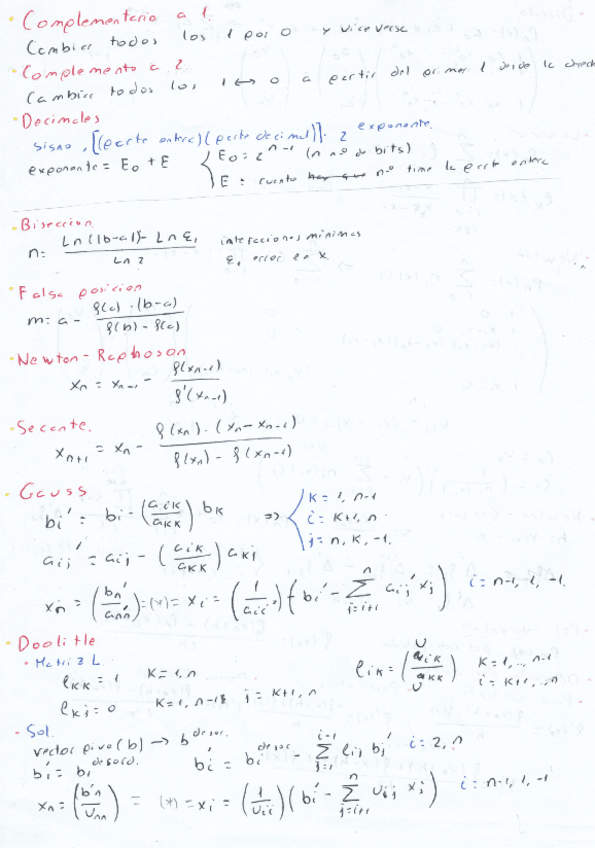 Complementario a 1.
Cambiar todos los 1 por 0 y viceversa
Complemento a 2
Cambiar todos los 1 ↔ 0 a partir del primer 1 desde la derech
Decimales
signo, [(parte entera)(parte decimal)] · 2^exponente.
exponente = E0 + E { E0 = 2^(n-1) (n nº de bits)
E = cuento nº tiene la parte entera
Biseccion
n = (Ln(|b-a|) - Ln ε1) / Ln 2 interacciones mínimas
ε1 error en x.
Falsa posicion
m = a - (f(a) · (b-a)) / (f(b) - f(a))
Newton - Raphoson
xn = xn-1 - f(xn-1) / f'(xn-1)
Secante.
xn+1 = xn - (f(xn) · (xn - xn-1)) / (f(xn) - f(xn-1))
Gauss
bi' = bi - (aik/akk) bk ⇒ { k = 1, n-1
i = k+1, n
j = n, k, -1.
aij' = aij - (aik/akk) akj
xn = (bn'/ann') = (*) = xi = (1/aii') (bi' - Σ(j=i+1, n) aij' xj) i = n-1, 1, -1.
Doolitle
Matriz L.
lkk = 1 k = 1, n
lik = (aik/akk) k = 1, ..., n-1
i = k+1, ..., n
lkj = 0 k = 1, n-1 j = k+1, n
Sol.
vector pivo(b) → b^desor.
bi' = bi^desord. bi' = bi^desor Σ(j=1, i-1) lij bj' i = 2, n
xn = (b'n/Unn) = (*) = xi = (1/Uii) (bi' - Σ(j=i+1, n) Uij xj) i = n-1, 1, -1